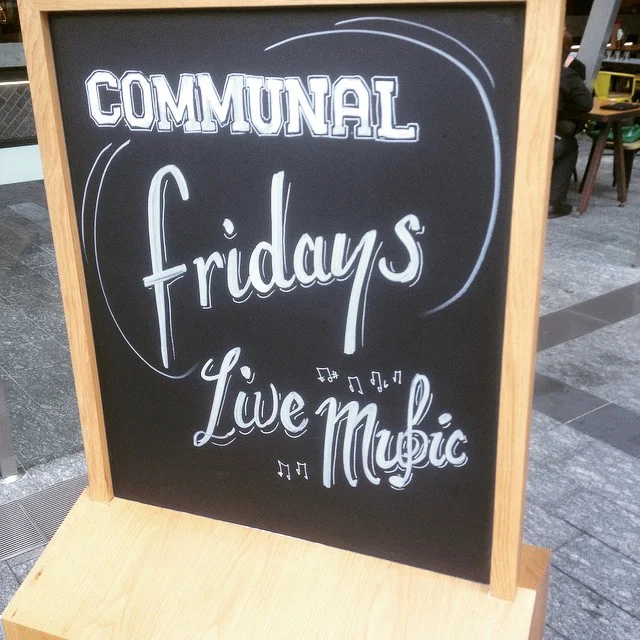 COMMUNAL
fridays
Live Music